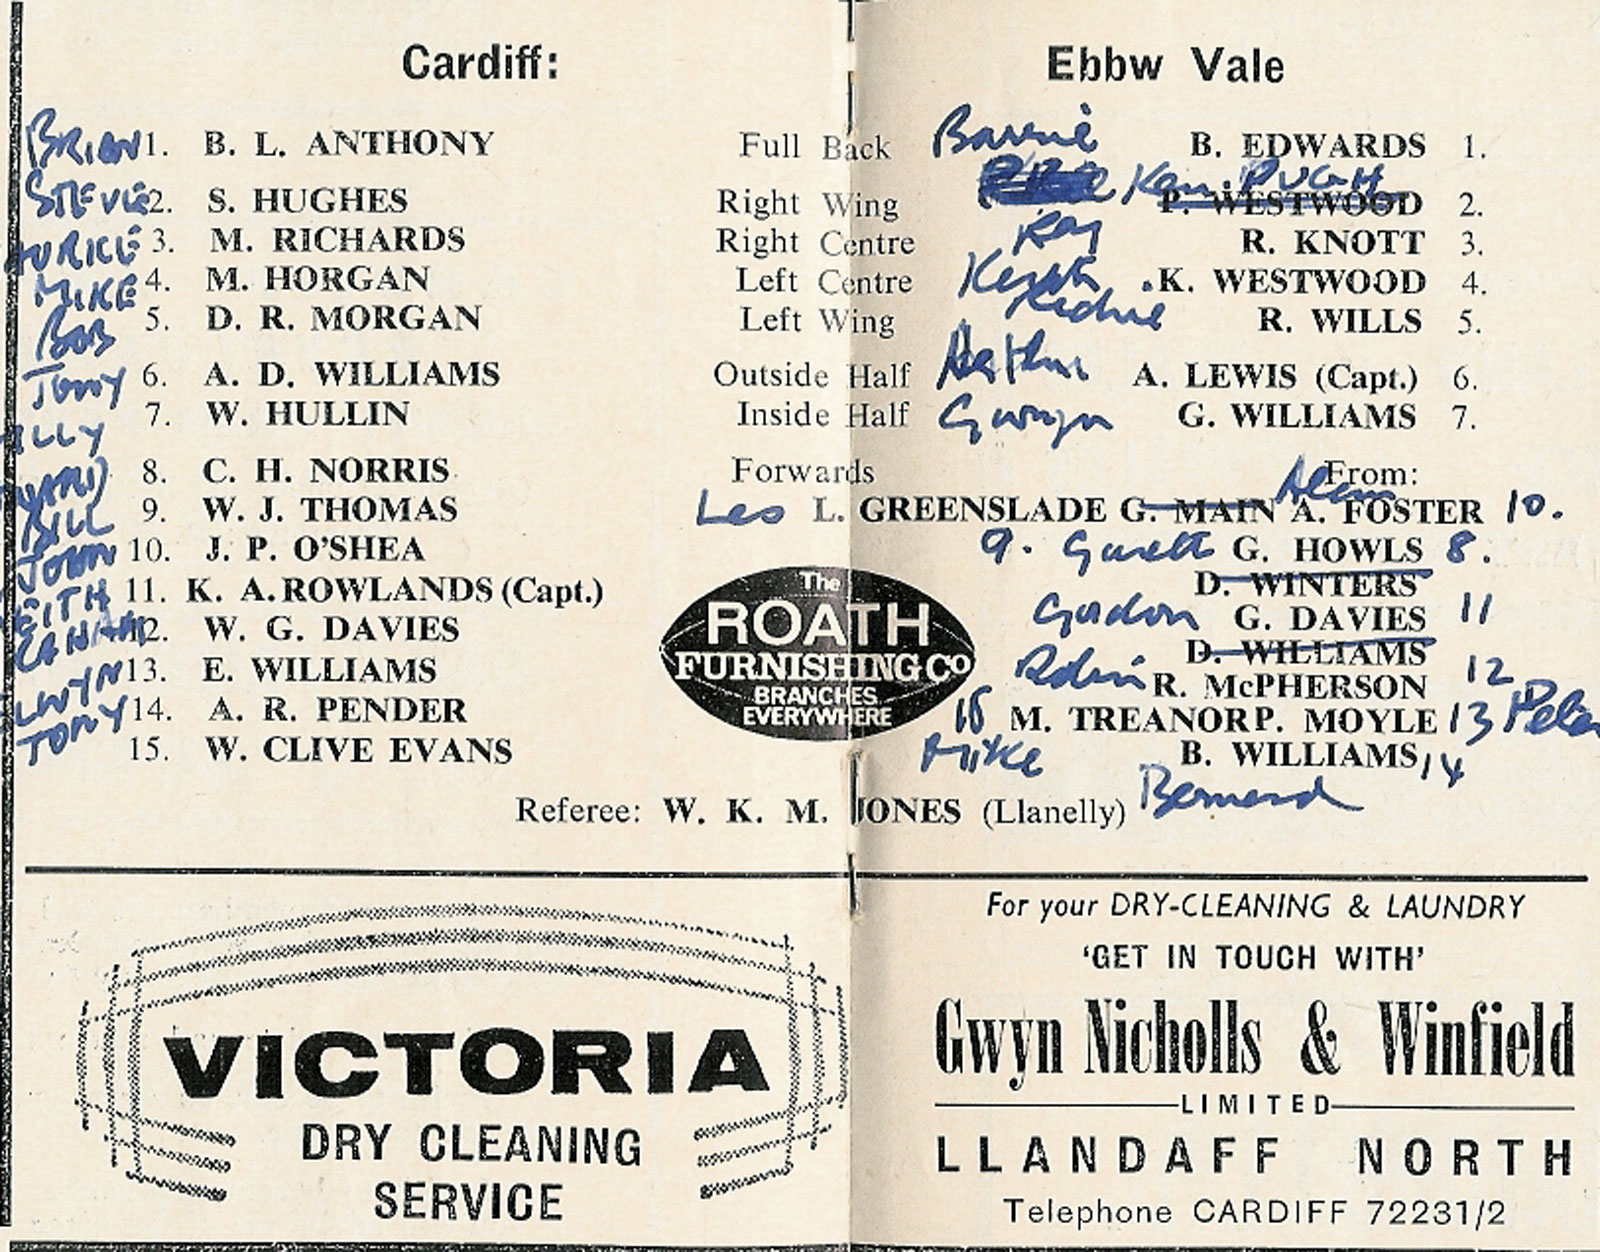 Cardiff: Ebbw Vale
BRIAN 1. B. L. ANTHONY Full Back Barrie B. EDWARDS 1.
Ken PUGH
STEVE 2. S. HUGHES Right Wing P. WESTWOOD 2.
3. M. RICHARDS Right Centre Ray R. KNOTT 3.
MIKE 4. M. HORGAN Left Centre Keith K. WESTWOOD 4.
BOB 5. D. R. MORGAN Left Wing R. WILLS 5.
TONY 6. A. D. WILLIAMS Outside Half Arthur A. LEWIS (Capt.) 6.
ILLY 7. W. HULLIN Inside Half Gwyn G. WILLIAMS 7.
8. C. H. NORRIS Forwards From:
Alan
BILL 9. W. J. THOMAS Les L. GREENSLADE G. MAIN A. FOSTER 10.
JOHN 10. J. P. O'SHEA 9. Gareth G. HOWLS 8.
D. WINTERS
EITH 11. K. A. ROWLANDS (Capt.) Gordon G. DAVIES 11
12. W. G. DAVIES D. WILLIAMS
LWYN 13. E. WILLIAMS Robin R. McPHERSON 12
TONY 14. A. R. PENDER 15 M. TREANOR P. MOYLE 13 Peter
15. W. CLIVE EVANS Mike B. WILLIAMS 14
Bernard
The
ROATH
FURNISHING Co
BRANCHES
EVERYWHERE
Referee: W. K. M. JONES (Llanelly)
VICTORIA
DRY CLEANING
SERVICE
For your DRY-CLEANING & LAUNDRY
'GET IN TOUCH WITH'
Gwyn Nicholls & Winfield
LIMITED
LLANDAFF NORTH
Telephone CARDIFF 72231/2